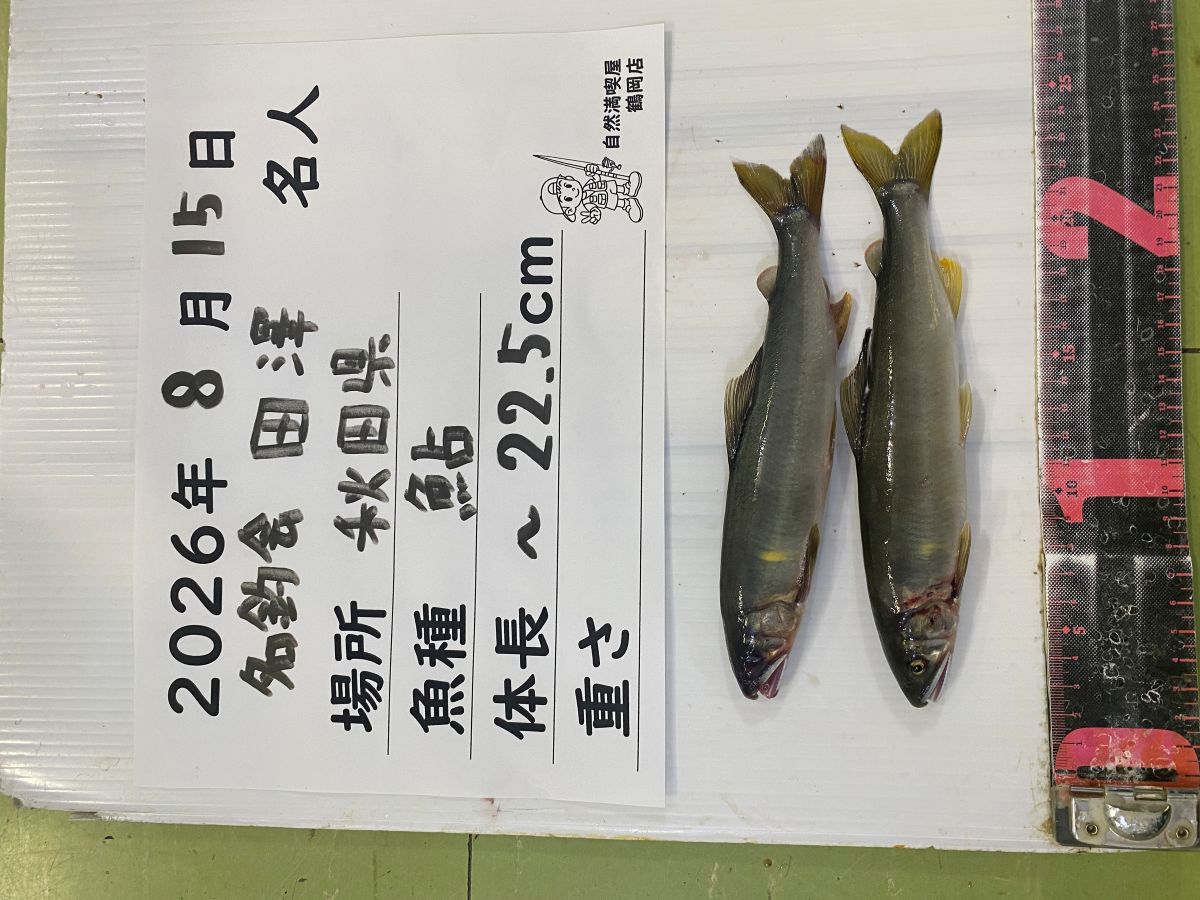 2026年8月15日
名釣会 田澤 名人
場所 秋田県
魚種 鮎
体長 ~22.5cm
重さ
自然満喫屋
鶴岡店
0
1
2
5
10
15
20
25